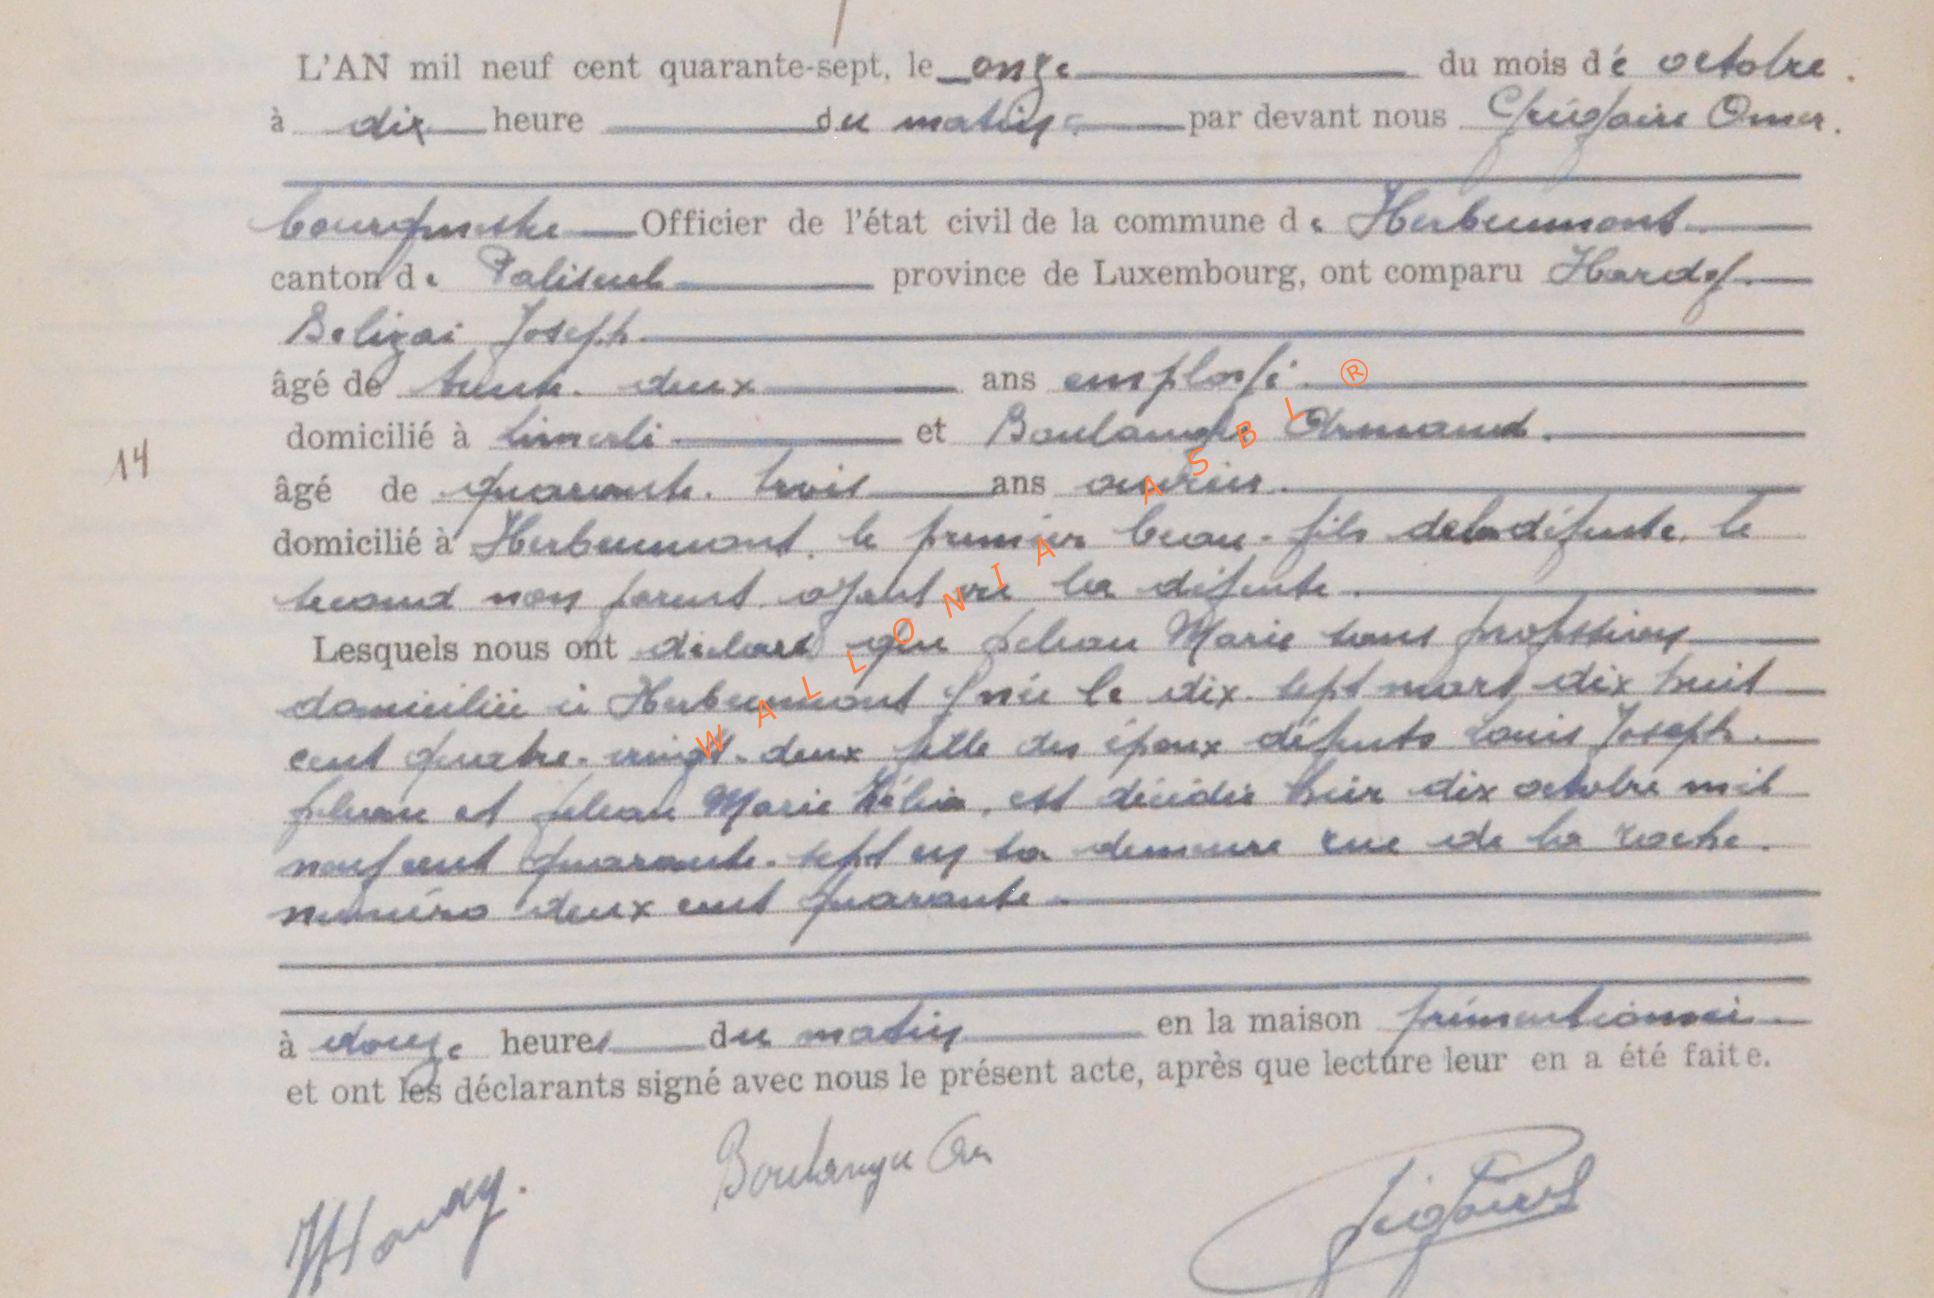 L'AN mil neuf cent quarante-sept, le onze du mois de octobre.
à dix heure du matin par devant nous Grégoire Omer.
bourgmestre Officier de l'état civil de la commune de Herbeumont
canton de Paliseul province de Luxembourg, ont comparu Hardy
Joseph.
âgé de trente-deux ans employé.
domicilié à et Boulanger Armand.
14
âgé de quarante-trois ans ouvrier.
domicilié à Herbeumont, le premier beau-fils de la défunte, le
second non parent ayant vu la défunte.
Lesquels nous ont déclaré que Marie sans profession
domiciliée à Herbeumont y née le dix-sept mars dix huit
cent quatre-vingt-deux fille des époux défunts Louis Joseph
et Marie est décédée hier dix octobre mil
neuf cent quarante-sept en sa demeure rue de la roche.
numéro deux cent quarante.
à douze heures du matin en la maison prémentionnée
et ont les déclarants signé avec nous le présent acte, après que lecture leur en a été faite.
WALLONIA ASBL ®
Hardy.
Boulanger